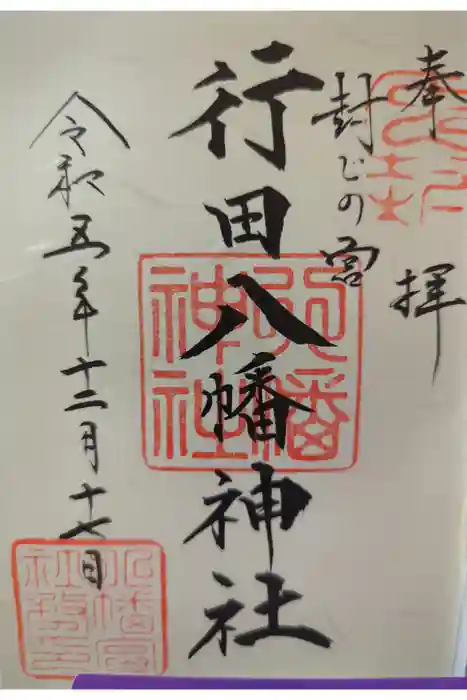 奉拝
封じの宮
行田八幡神社
令和五年十二月十七日
八幡神社